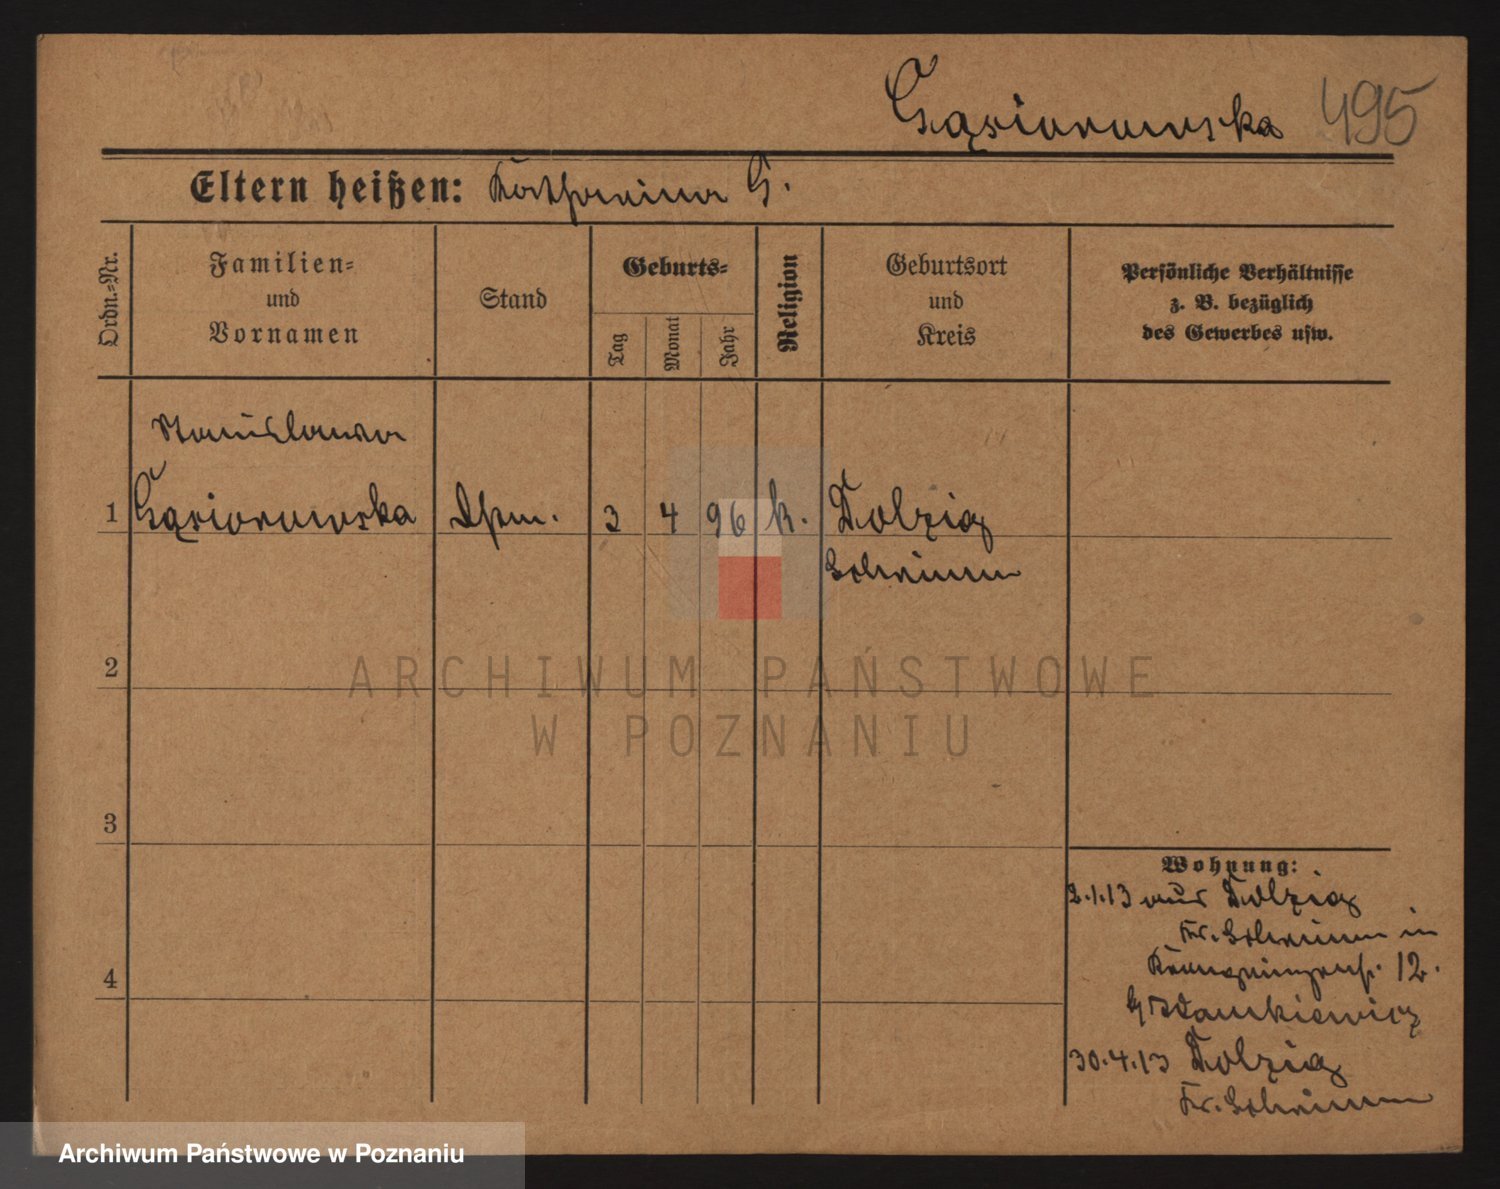 Gąsiorowska 495
Eltern heißen: Katharina G.
Ordn.-Nr.
Familien-
und
Vornamen
Stand
Geburts-
Tag
Monat
Jahr
Religion
Geburtsort
und
Kreis
Persönliche Verhältnisse
z. B. bezüglich
des Gewerbes usw.
Stanislawa
1 Gąsiorowska 3 4 96 k. Dolzig
Schrimm
2
3
4
Wohnung:
2.1.13 aus Dolzig
Kr. Schrimm in
12.
30.4.13 Dolzig
Kr. Schrimm
ARCHIWUM PAŃSTWOWE
W POZNANIU
Archiwum Państwowe w Poznaniu